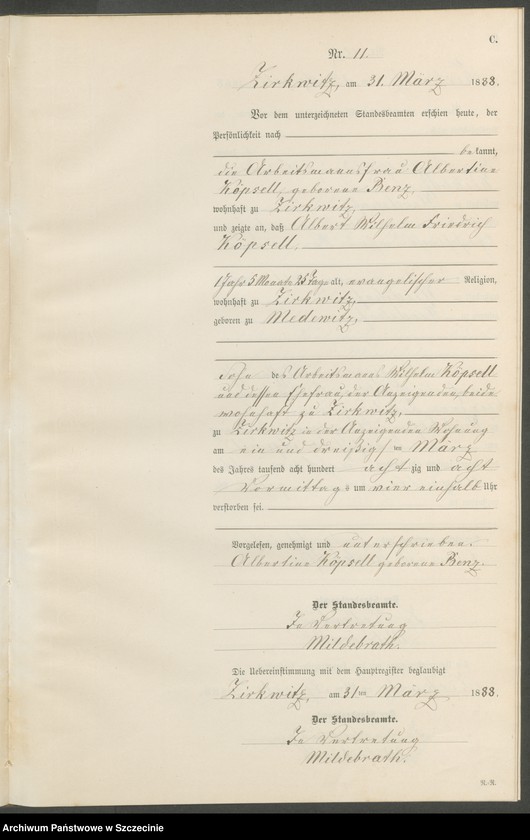 C.
Nr. 11.
Zirkwitz, am 31. März 1888.
Vor dem unterzeichneten Standesbeamten erschien heute, der
Persönlichkeit nach
bekannt,
die Arbeitsmannsfrau Albertine
Köpsell, geborene Benz,
wohnhaft zu Zirkwitz,
und zeigte an, daß Albert Wilhelm Friedrich
Köpsell,
1 Jahr 5 Monate 25 Tage alt, evangelischer Religion,
wohnhaft zu Zirkwitz,
geboren zu Medewitz,
Sohn des Arbeitsmanns Wilhelm Köpsell
und dessen Ehefrau, der Anzeigenden, beide
wohnhaft zu Zirkwitz,
zu Zirkwitz in der Anzeigenden Wohnung
am ein und dreißigsten März
des Jahres tausend acht hundert achtzig und acht
Vormittags um vier einhalb Uhr
verstorben sei.
Vorgelesen, genehmigt und unterschrieben.
Albertine Köpsell geborene Benz.
Der Standesbeamte.
In Vertretung
Mildebrath.
Die Uebereinstimmung mit dem Hauptregister beglaubigt
Zirkwitz, am 31ten März 1888.
Der Standesbeamte.
In Vertretung
Mildebrath.
R.-R.
Archiwum Państwowe w Szczecinie